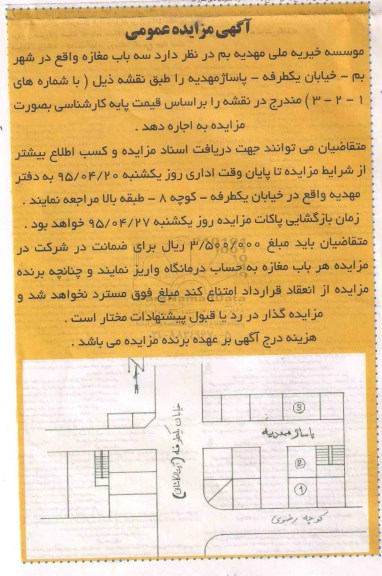 آگهی مزایده عمومی
موسسه خیریه ملی مهدیه بم در نظر دارد سه باب مغازه واقع در شهر
بم - خیابان یکطرفه - پاساژ مهدیه را طبق نقشه ذیل ( با شماره های
۱ - ۲ - ۳ ) مندرج در نقشه را براساس قیمت پایه کارشناسی بصورت
مزایده به اجاره دهد .
متقاضیان می توانند جهت دریافت اسناد مزایده و کسب اطلاع بیشتر
از شرایط مزایده تا پایان وقت اداری روز یکشنبه ۹۵/۰۴/۲۰ به دفتر
مهدیه واقع در خیابان یکطرفه - کوچه ۸ - طبقه بالا مراجعه نمایند .
زمان بازگشایی پاکات مزایده روز یکشنبه ۹۵/۰۴/۲۷ خواهد بود .
متقاضیان باید مبلغ ۳/۵۰۰/۰۰۰ ریال برای ضمانت در شرکت در
مزایده هر باب مغازه به حساب درمانگاه واریز نمایند و چنانچه برنده
مزایده از انعقاد قرارداد امتناع کند مبلغ فوق مسترد نخواهد شد و
مزایده گذار در رد یا قبول پیشنهادات مختار است .
هزینه درج آگهی بر عهده برنده مزایده می باشد .
N
خیابان یکطرفه
۳
پاساژ مهدیه
۲
۱
کوچه رضوی